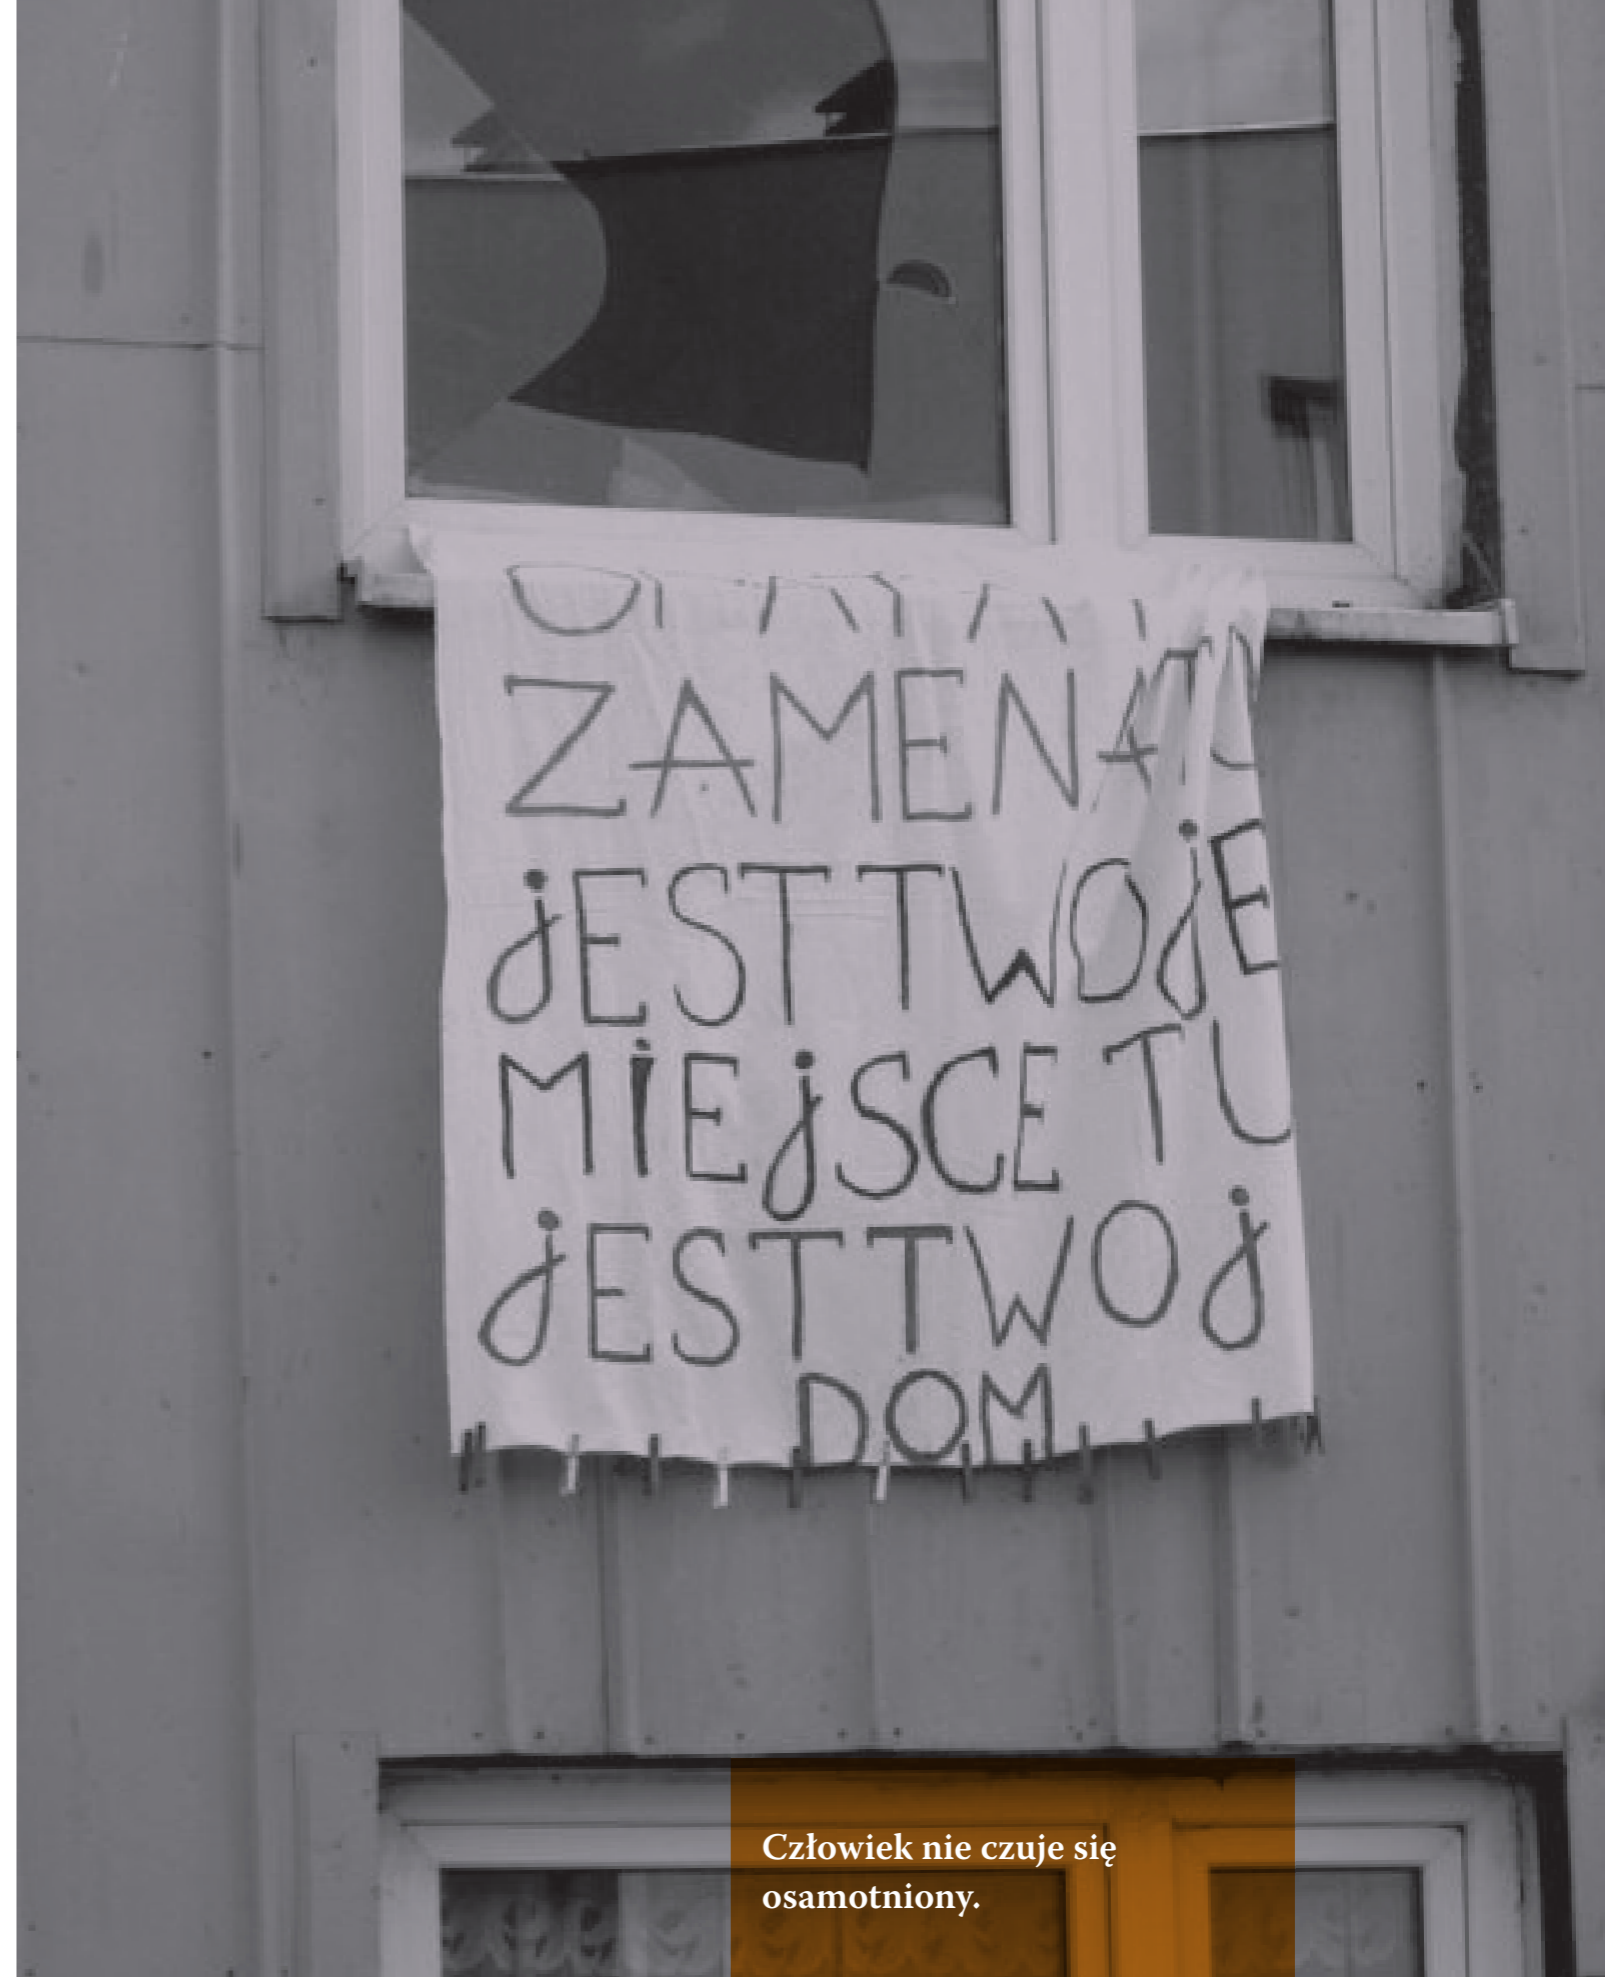 ZAMENA TU
jEST TWOjE
MiEjSCE TU
jEST TWOj
DOM
Człowiek nie czuje się
osamotniony.